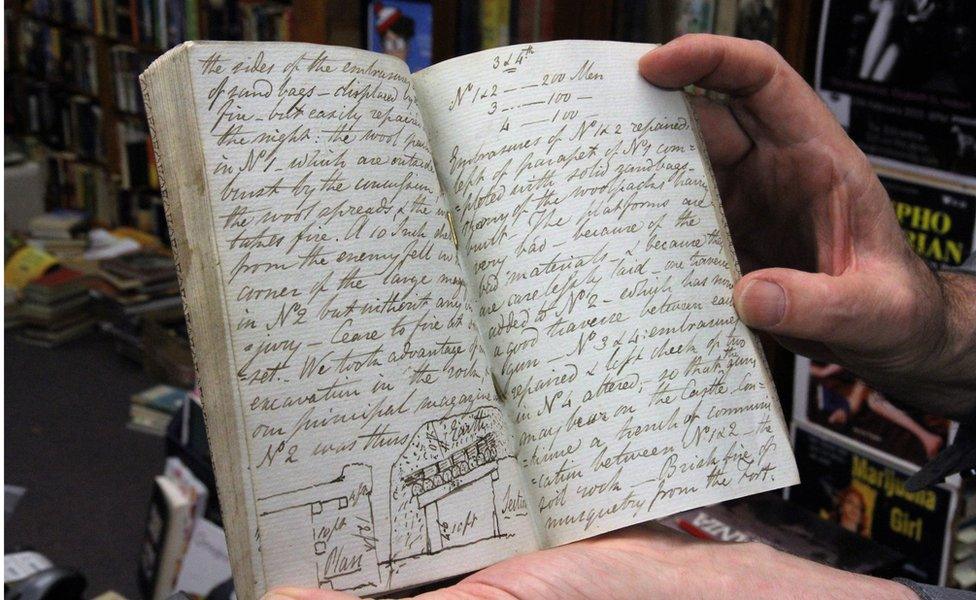 the sides of the embrasures
of sand bags - displaced by
fire - but easily repaired
the night: the wool packs
in No 1, which are outside
burst by the concussion
the wool spreads & the
takes fire. A 10 Inch shell
from the enemy fell in
corner of the large magazine
in No 2 but without any in
=jury - Cease to fire at Sun
=set. We took advantage of
excavation in the rock
our principal magazine
No 2 was thus
Earth
4ft
10ft
2ft
Plan
10ft
Section
3 & 4th
No 1 & 2 - - — 200 Men
3 - - — 100 —
4 - — 100 —
Embrasures of No 1 & 2 repaired,
left of parapet of No 1 com=
=pleted with solid sandbags
many of the woolpacks having
burst - The platforms are
very bad - because of the
bad materials & because they
are carelessly laid - one traverse
added to No 2 - which has now
a good traverse between each
gun - No 3 & 4: embrasures
repaired & left cheek of two
in No 4 altered; so that the guns
may bear on the Castle. Con=
=tinue a trench of communi
=cation between No 1 & 2 - the
soil rock - Brisk fire of
musquetry from the Fort.
PHO
ARIAN
Marijuana
Girl